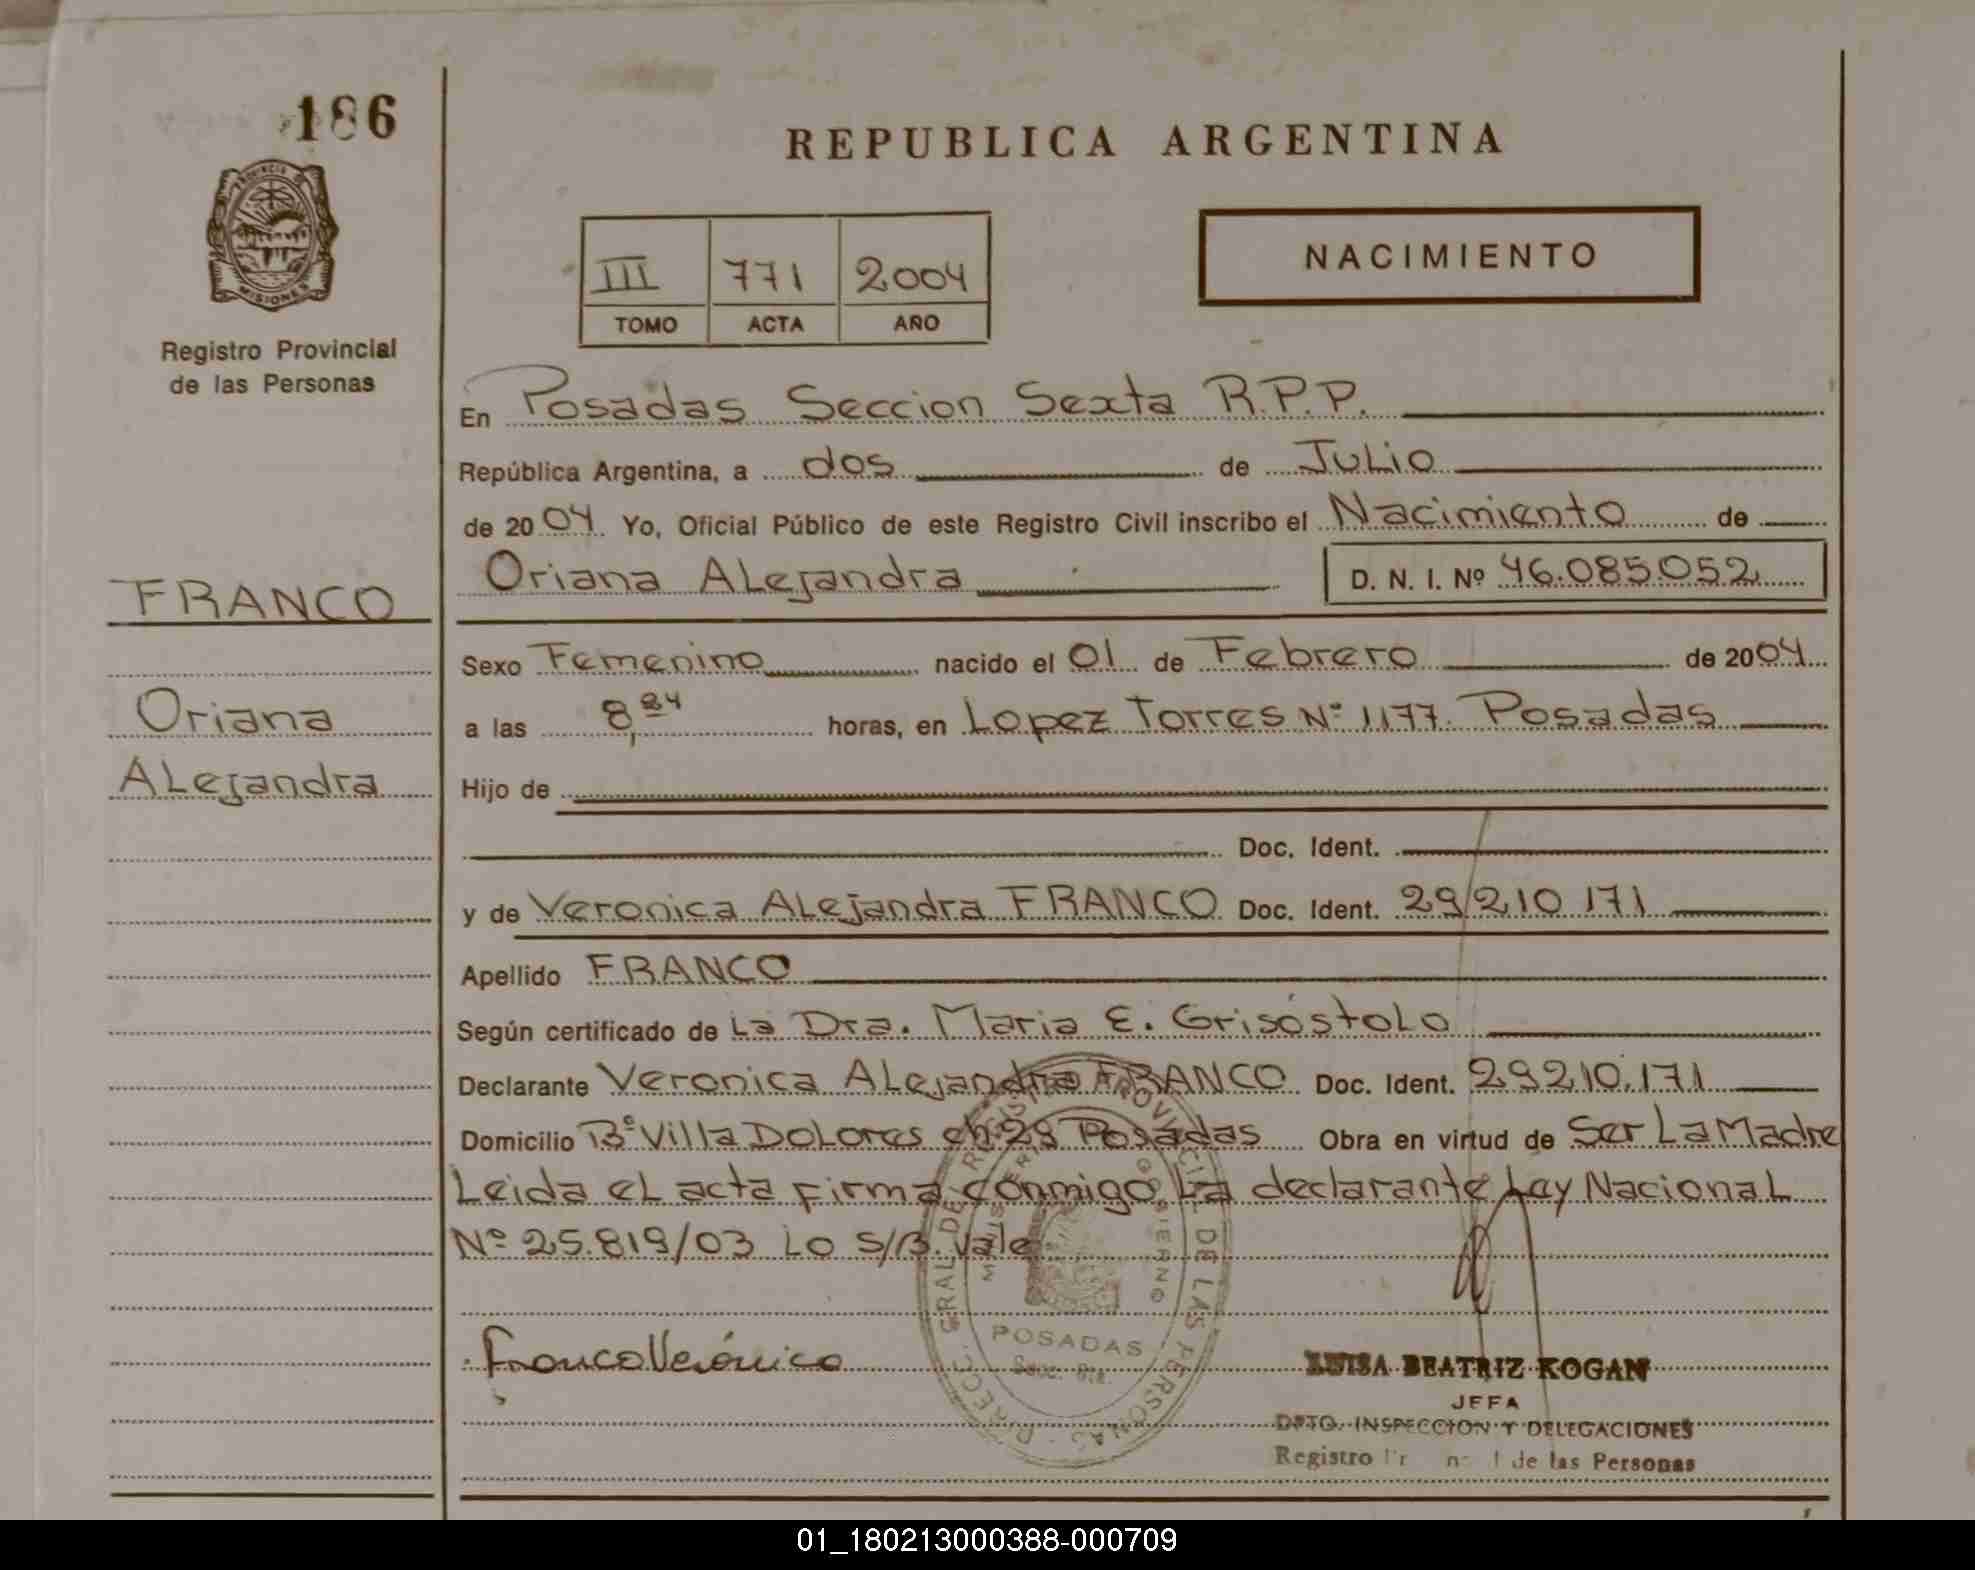 186
REPUBLICA ARGENTINA
PROVINCIA DE
MISIONES
III 771 2004
TOMO ACTA AÑO
NACIMIENTO
Registro Provincial
de las Personas
En Posadas Seccion Sexta R.P.P.
República Argentina, a dos de Julio
de 2004 Yo, Oficial Público de este Registro Civil inscribo el Nacimiento de
Oriana Alejandra D. N. I. Nº 46.085.052
FRANCO
Oriana
Alejandra
Sexo Femenino nacido el 01 de Febrero de 2004
a las 8, horas, en Lopez Torres Nº 1177. Posadas
Hijo de
Doc. Ident.
y de Veronica Alejandra FRANCO Doc. Ident. 29 210 171
Apellido FRANCO
Según certificado de La Dra. Maria E. Grisóstolo
Declarante Veronica Alejandra FRANCO Doc. Ident. 29210.171
Domicilio Bº Villa Dolores ch. 29 Posadas Obra en virtud de Ser La Madre
Leida el acta firma conmigo La declarante Ley Nacional
Nº 25.819/03 Lo S/B. Vale
Franco Verónica
DIRECC. GRAL. DE REGISTRO PROVINCIAL DE LAS PERSONAS
MINISTERIO GOBIERNO
POSADAS
Secc. 6ta.
LUISA BEATRIZ KOGAN
JEFA
DPTO. INSPECCION Y DELEGACIONES
Registro de las Personas
01_180213000388-000709